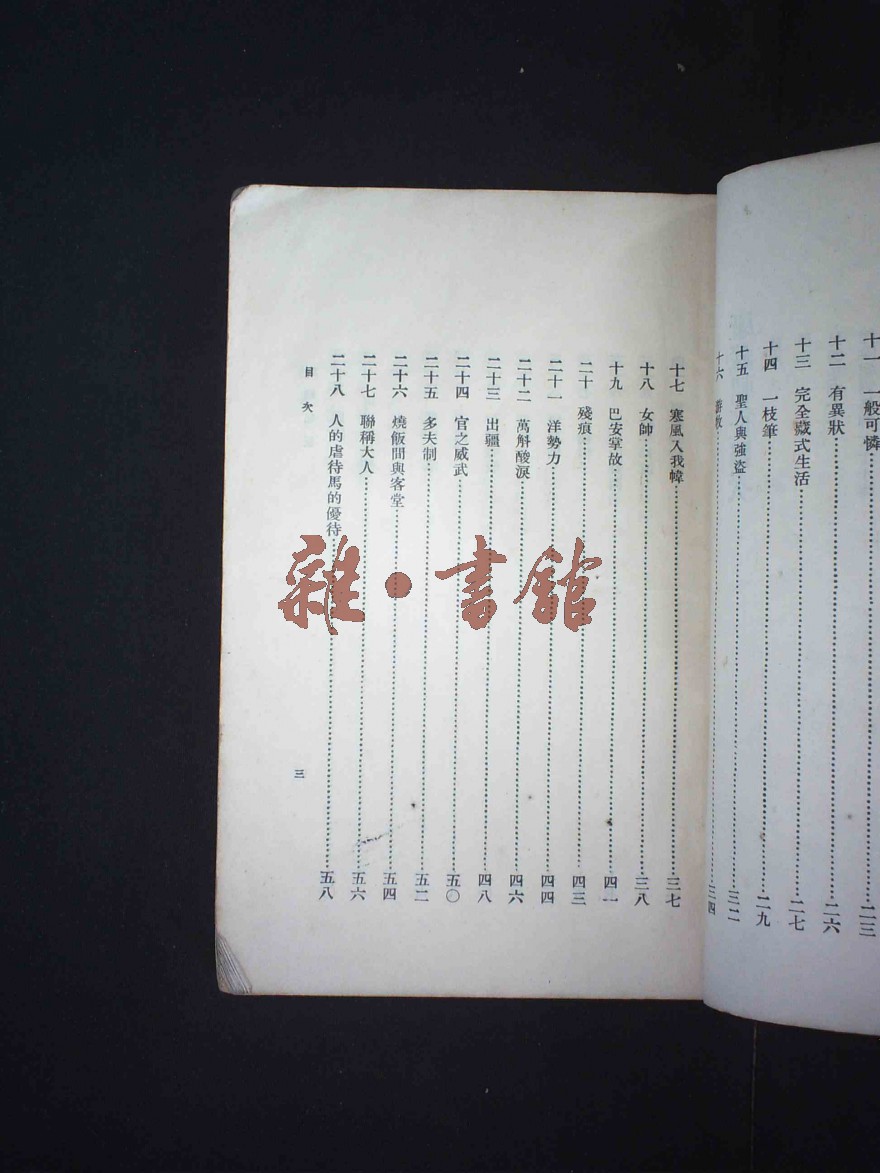 十一 一般可憐……二三
十二 有異狀……二六
十三 完全藏式生活……二七
十四 一枝筆……二九
十五 聖人與強盜……三二
十六……三四
十七 寒風入我幃……三七
十八 女帥……三八
十九 巴安掌故……四一
二十 殘痕……四三
二十一 洋勢力……四四
二十二 萬斛酸淚……四六
二十三 出疆……四八
二十四 官之威武……五〇
二十五 多夫制……五二
二十六 燒飯間與客堂……五四
二十七 聯稱大人……五六
二十八 人的虐待馬的優待……五八
目次
三
雜·書館